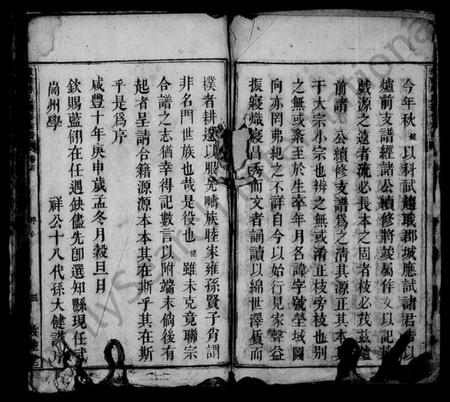 今年秋健以科試趨珉郡城應試諸君子以
爐前支譜經諸公續修將竣屬作文以記
戲源之遠者流必長本之固者枝必茂茲爐
前諸公續修支譜為之清其源正其本
于大宗小宗也辨之無或淆正枝旁枝也别
之無或紊至於生卒年月名諱字號塋域圖
向亦罔弗紀之不詳自今以始行見家聲益
振寢熾寢昌秀而文者誦讀以綿世澤質而
樸者耕鑿以服先疇族睦宗雍孫賢子肖謂
非名門世族也哉是役也健雖未克竟聯宗
合譜之志猶幸得記數言以附端末倘後有
起者呈請合籍源源本本其在斯乎其在斯
乎是為序
咸豐十年庚申歲孟冬月穀旦
欽賜藍翎在任遇缺儘先即選知縣現任
崗州學
祥公十八代孫大健